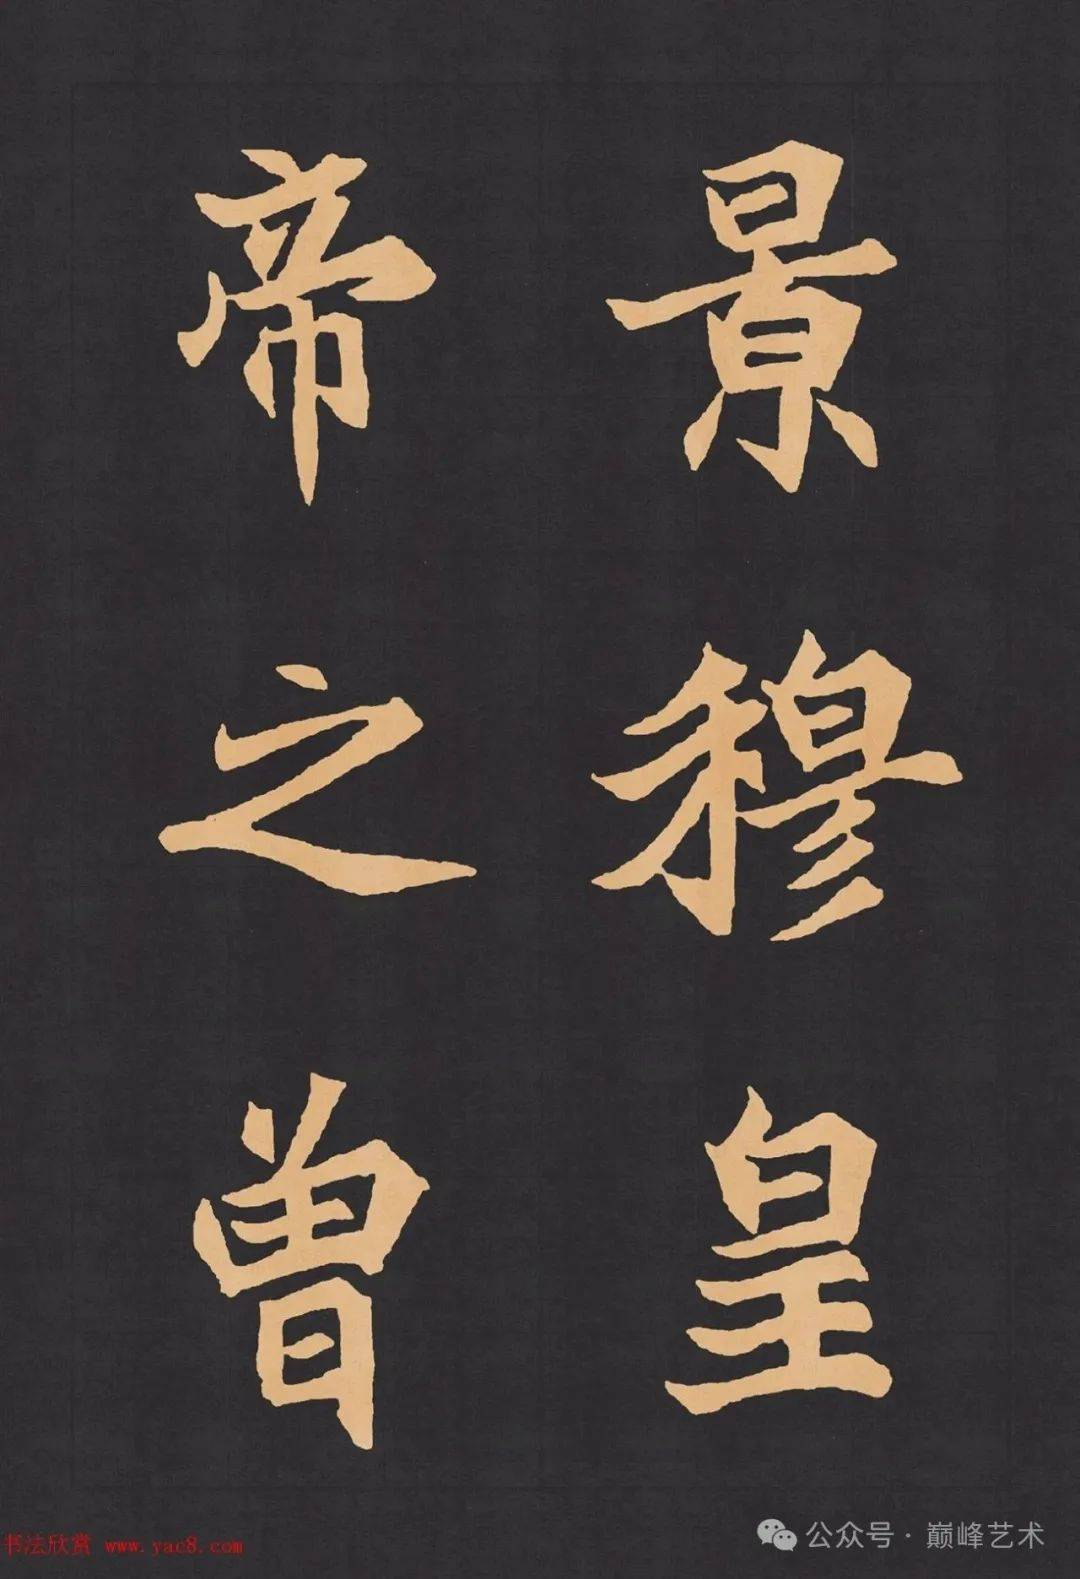 景穆皇
帝之曾
书法欣赏 www.yac8.com
公众号·巅峰艺术